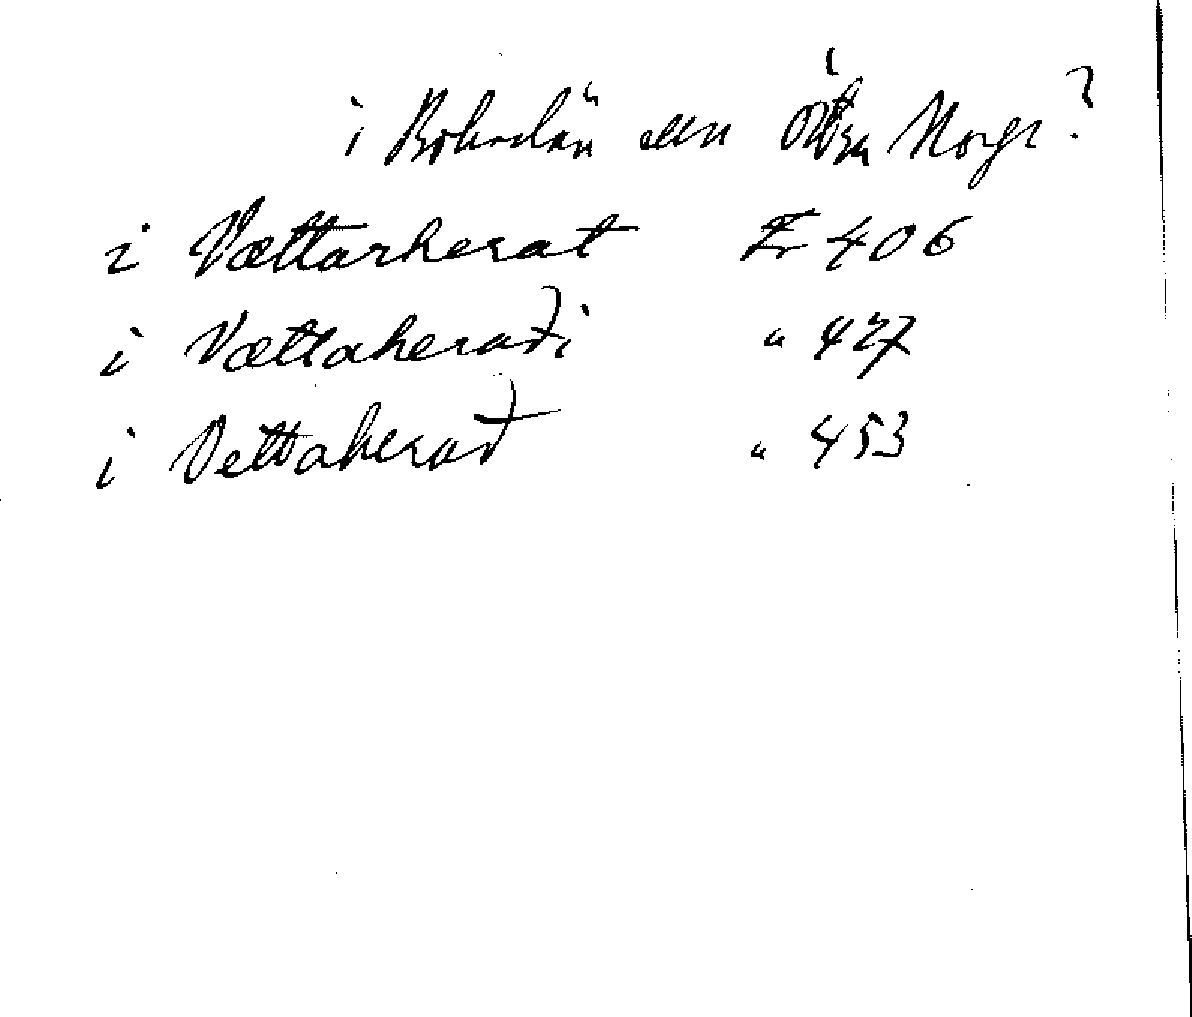 i Bohuslän eller Norge?
i Vættarherat E 406
i Vættaheraði " 427
i Vettaherað " 453